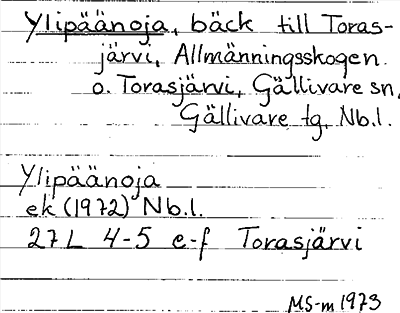 Ylipäänoja, bäck till Toras-
järvi, Allmänningsskogen
o. Torasjärvi, Gällivare sn,
Gällivare tg, Nb.l.
Ylipäänoja
ek (1972) Nb.l.
27 L 4-5 e-f Torasjärvi
MS-m 1973